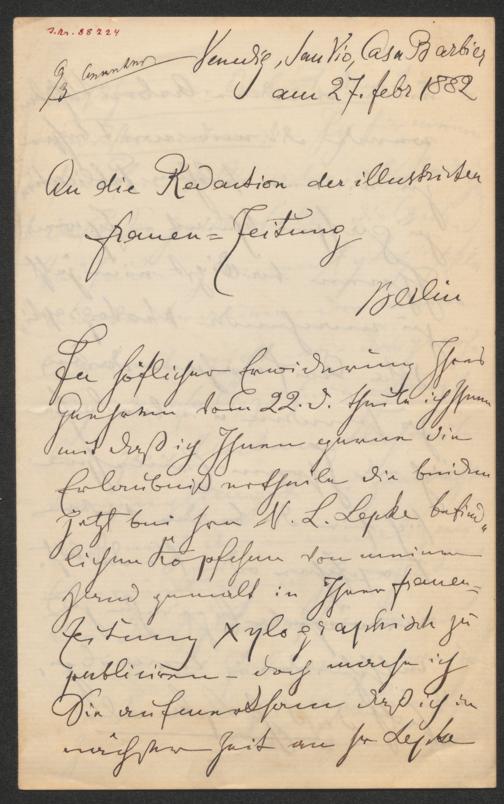 J.Nr. 88224
9/3
Venedig, San Vio, Casa Barbier
am 27. febr 1882
An die Redaction der illustrirten
Frauen=Zeitung
Berlin
In höflicher Erwiderung Ihres
geehrten vom 22. d. theile ich Ihnen
mit daß ich Ihnen gerne die
Erlaubniß ertheile die beiden
jetzt bei Hrn N. L. Lepke befind„
lichen Köpfchen von meiner
Hand gemalt in Ihrer Frauen=
Zeitung xylographisch zu
publiciren – doch mache ich
Sie aufmerksam daß ich in
nächster Zeit an Hr Lepke